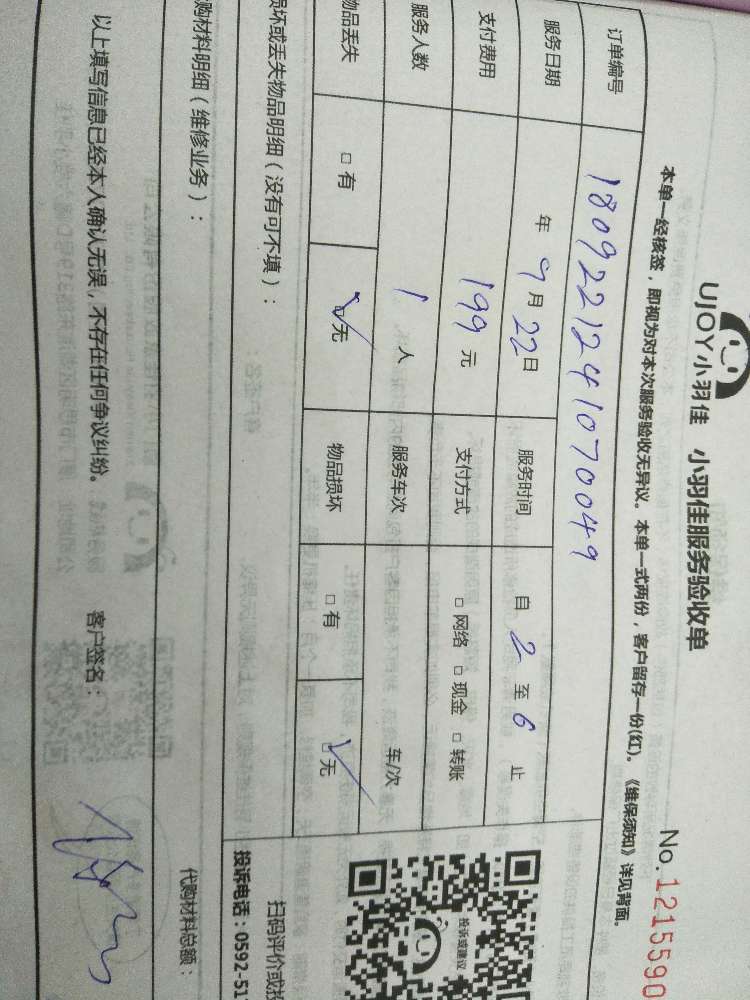 UJOY小羽佳 小羽佳服务验收单
No.1215590
本单一经核签，即视为对本次服务验收无异议。本单一式两份，客户留存一份(红)。《维保须知》详见背面。
订单编号 18092212410700049
服务日期 年 9月22日 服务时间 自 2 至 6 止
支付费用 199 元 支付方式 □ 网络 □ 现金 □ 转账
服务人数 1 人 服务车次 车/次
物品丢失 □ 有 □无 物品损坏 □ 有 □无
损坏或丢失物品明细（没有可不填）：
投诉或建议
扫码评价或投
投诉电话：0592-51
购材料明细（维修业务）：
代购材料总额：
以上填写信息已经本人确认无误，不存在任何争议纠纷。 客户签名：